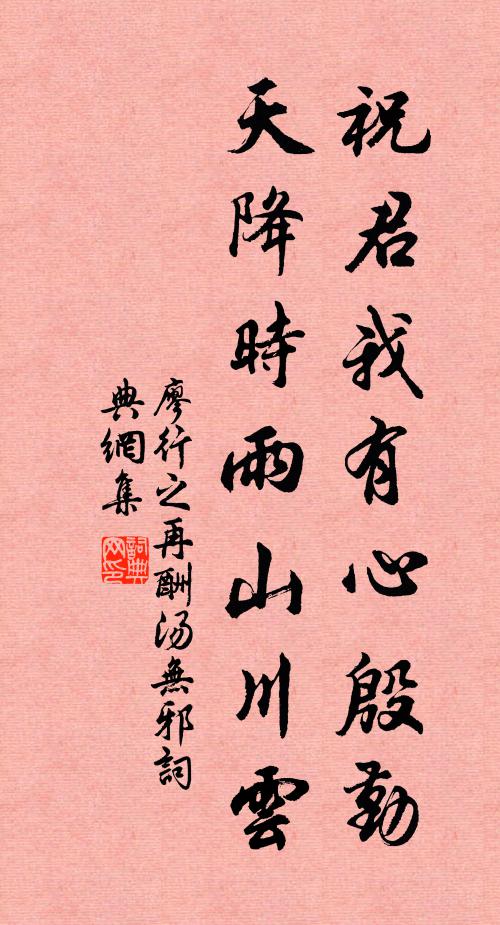 祝君我有心殷勤
天降時雨山川雲
廖行之再酬汤無邪詞
典網集
詞典網印